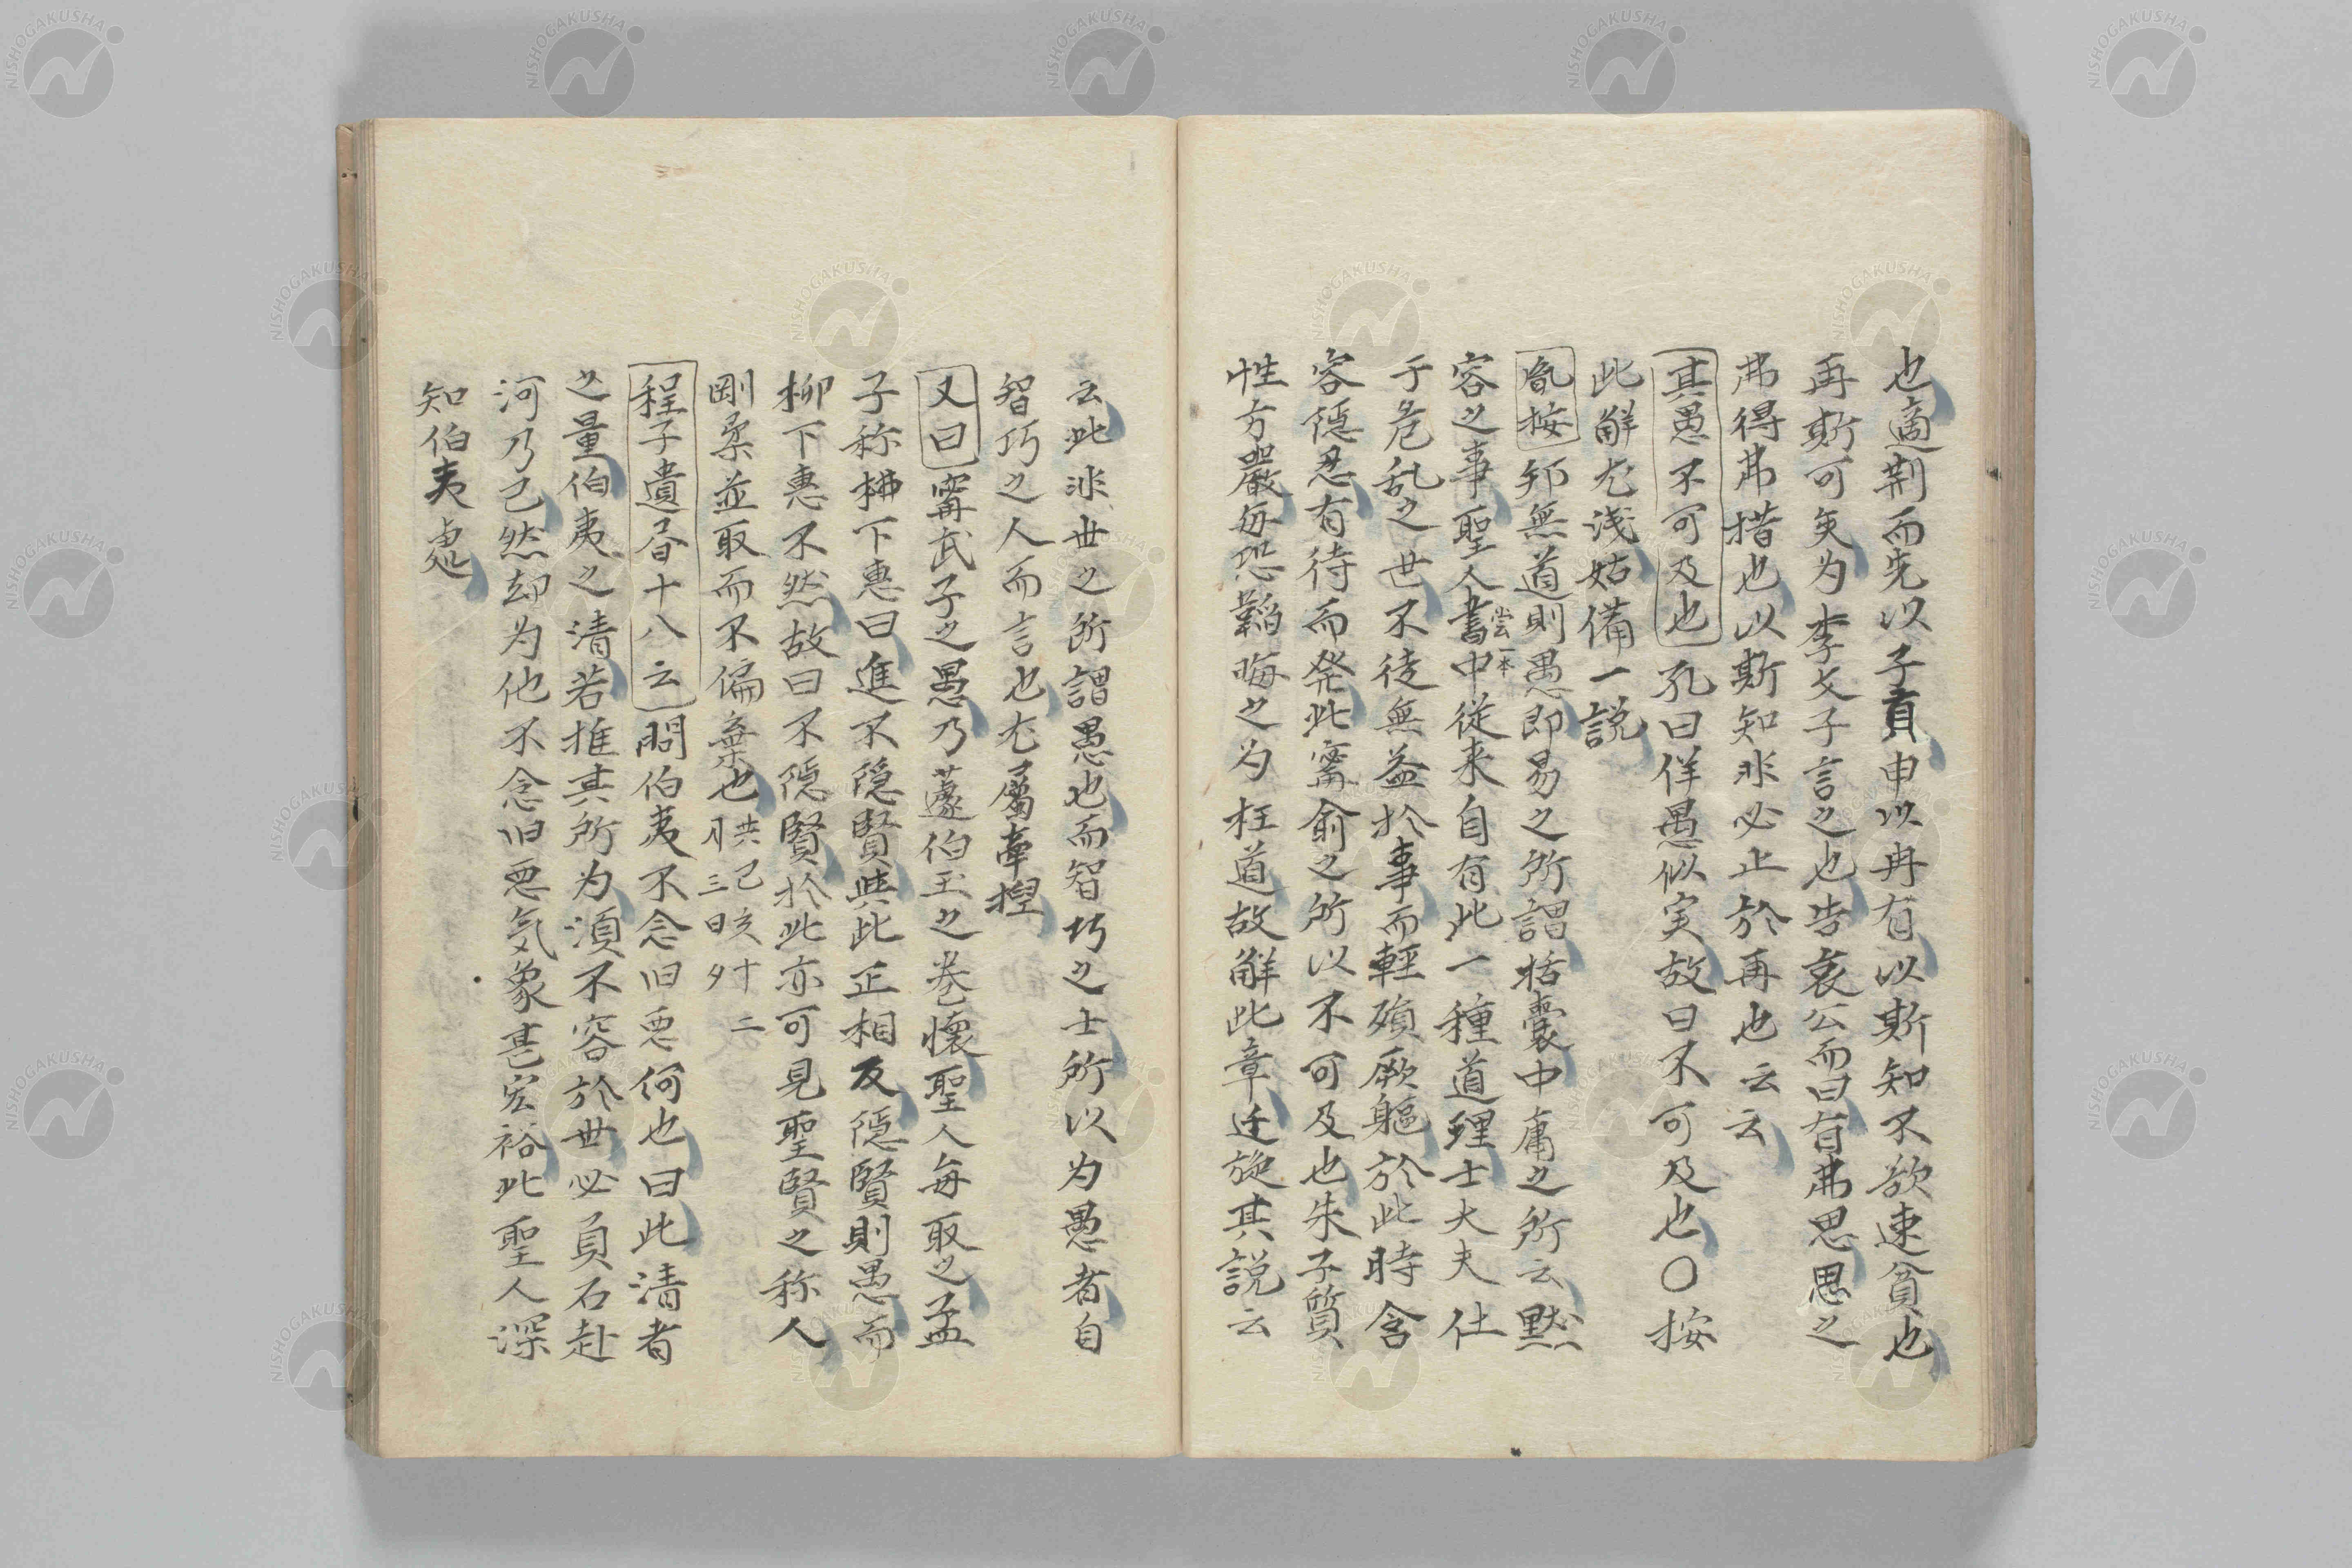 也適荆而先以子貢申以冉有以斯知不欲速貧也
再斯可矣为李文子言之也告哀公而曰有弗思思之
弗得弗措也以斯知非必止於再也云云
其愚不可及也 孔曰佯愚似実故曰不可及也〇按
此解尤浅姑備一説
胤按 邦無道則愚即易之所謂括囊中庸之所云黙
容之事聖人書中従来自有此一種道理士大夫仕
于危乱之世不徒無益於事而輕殞厥軀於此時含
容隠忍有待而発此甯俞之所以不可及也朱子質
性方嚴毎恐韜晦之为枉道故解此章迂旋其説云
云此非世之所謂愚也而智巧之士所以为愚者自
智巧之人而言也尤屬牽揑
又曰 甯武子之愚乃蘧伯玉之巻懐聖人毎取之孟
子称栁下惠曰進不隠賢與此正相反隠賢則愚而
柳下惠不然故曰不隠賢於此亦可見聖賢之称人
剛柔並取而不偏棄也 共己亥十二
月三日夕
程子遺書十八云 問伯夷不念旧悪何也曰此清者
之量伯夷之清若推其所为須不容於世必負石赴
河乃已然却为他不念旧悪気象甚宏裕此聖人深
知伯夷處
NISHOGAKUSHA